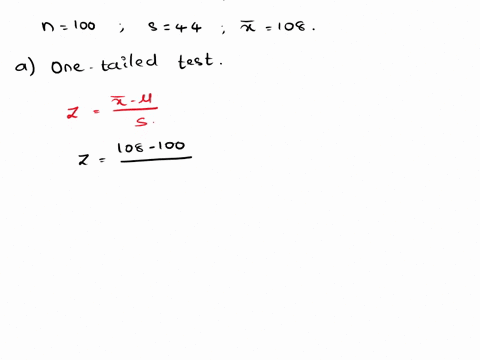 n = 100 ; s = 44 ; x̄ = 108.
a) One-tailed test.
Z = x̄ - μ / s.
Z = 108 - 100 /